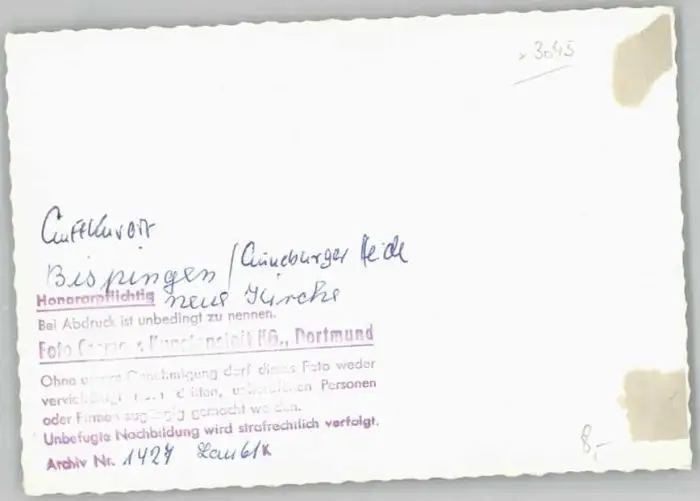 3045
Luftkurort
Bispingen / Lüneburger Heide
Honorarpflichtig neue Kirche
Bei Abdruck ist unbedingt zu nennen.
Foto Kunstanstalt KG., Dortmund
Ohne unsere Genehmigung darf dieses Foto weder
oder Firmen zugängig gemacht werden.
Unbefugte Nachbildung wird strafrechtlich verfolgt.
Archiv Nr. 1427
8,-